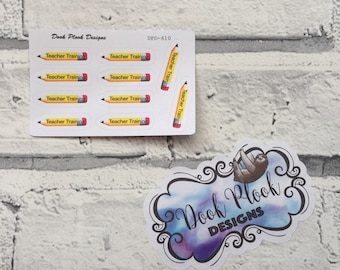 Dook Plook Designs DPD-610
Teacher Training Teacher Training
Teacher Training Teacher Training
Teacher Training Teacher Training
Teacher Training Teacher Training
Teacher Training
Teacher Training
Dook Plook
DESIGNS